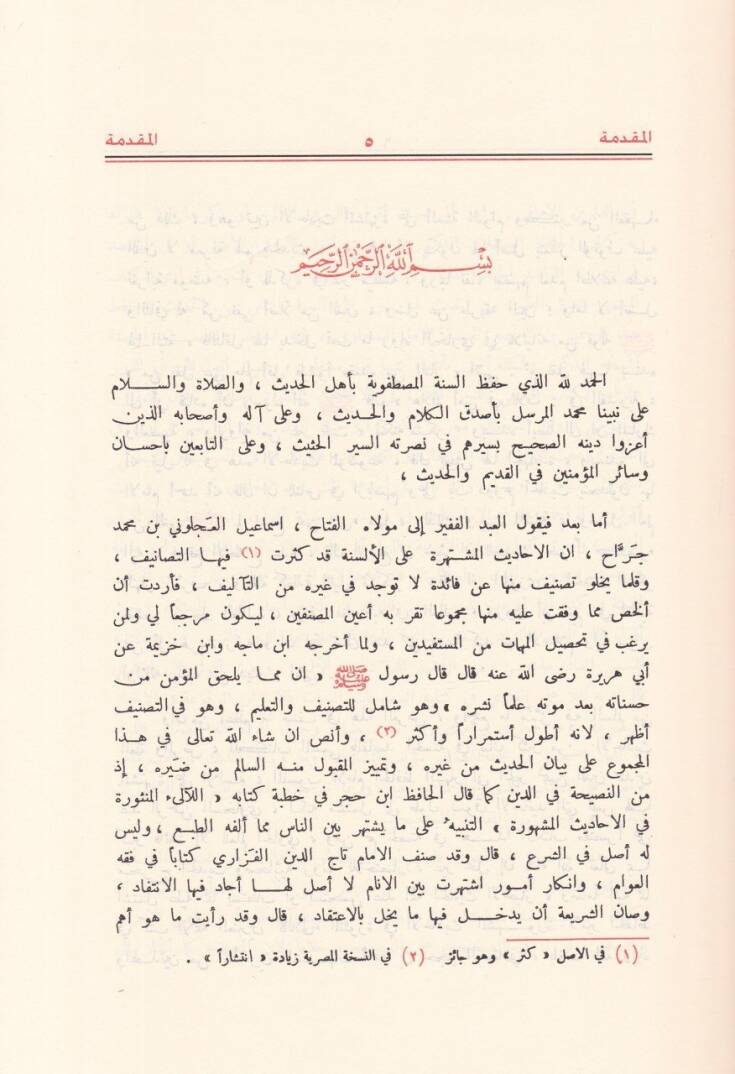 المقدمة ٥ المقدمة
بسم الله الرحمن الرحيم
الحمد لله الذي حفظ السنة المصطفوية بأهل الحديث ، والصلاة والسلام
على نبينا محمد المرسل بأصدق الكلام والحديث ، وعلى آله وأصحابه الذين
أعزوا دينه الصحيح بسيرهم في نصرته السير الحثيث ، وعلى التابعين باحسان
وسائر المؤمنين في القديم والحديث ،
أما بعد فيقول العبد الفقير إلى مولاه الفتاح ، اسماعيل العجلوني بن محمد
جرَّاح ، ان الاحاديث المشتهرة على الألسنة قد كثرت (١) فيها التصانيف ،
وقلما يخلو تصنيف منها عن فائدة لا توجد في غيره من التآليف ، فأردت أن
ألخص مما وقفت عليه منها مجموعا تقر به أعين المصنفين ، ليكون مرجعاً لي ولمن
يرغب في تحصيل المهات من المستفيدين ، ولما أخرجه ابن ماجه وابن خزيمة عن
أبي هريرة رضى الله عنه قال قال رسول ﷺ « ان مما يلحق المؤمن من
حسناته بعد موته علماً نشره » وهو شامل للتصنيف والتعليم ، وهو في التصنيف
أظهر ، لانه أطول أستمراراً وأكثر (٢) ، وأنص ان شاء الله تعالى في هذا
المجموع على بيان الحديث من غيره ، وتمييز المقبول منه السالم من ضَيره ، إذ
من النصيحة في الدين كما قال الحافظ ابن حجر في خطبة كتابه « اللآلىء المنثورة
في الاحاديث المشهورة » التنبيه على ما يشتهر بين الناس مما ألفه الطبع ، وليس
له أصل في الشرع ، قال وقد صنف الامام تاج الدين الفَزاري كتاباً في فقه
العوام ، وانكار أمور اشتهرت بين الانام لا أصل لها أجاد فيها الانتقاد ،
وصان الشريعة أن يدخل فيها ما يخل بالاعتقاد ، قال وقد رأيت ما هو أهم
(١) في الاصل « كثر » وهو جائز (٢) في النسخة المصرية زيادة « انتشاراً » .